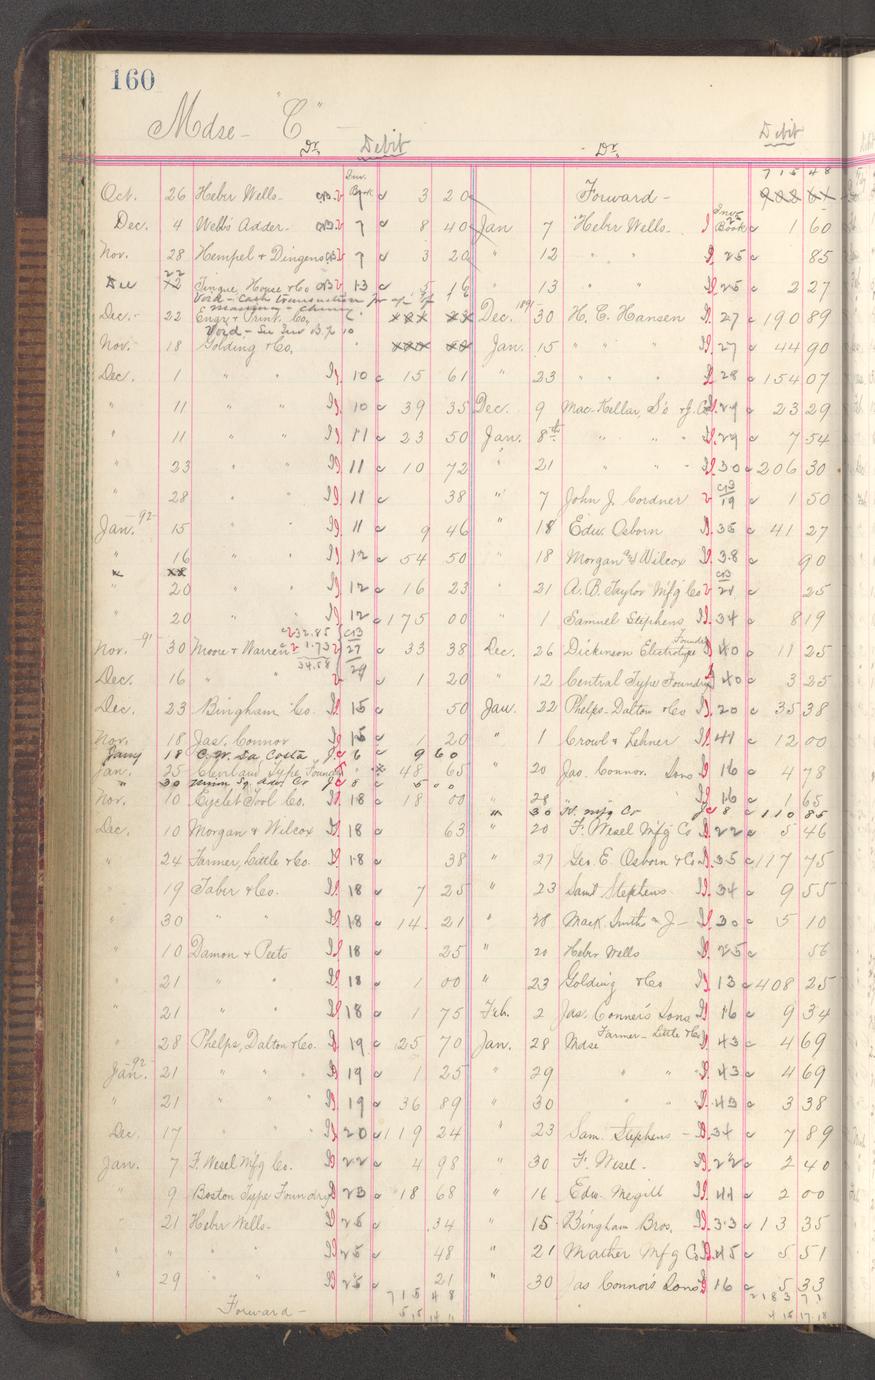 160
Mdse - "C"
Dr. Debit
Inv. Book
Oct. 26 Heber Wells - CB 7 3 20
Dec. 4 Webb's Adder. CB 7 8 40
Nov. 28 Hempel & Dingens CB 7 3 20
Dec 22 Tingue, House & Co CB 13 5 16
Void - Cash transaction
Dec. 22 Engr. & Print. Co. 6
Void - See Inv B. p 10
Nov. 18 Golding & Co.
Dec. 1 " " 10 15 61
" 11 " " 10 39 35
" 11 " " 11 23 50
" 23 " " 11 10 72
" 28 " " 11 38
Jan. 92 15 " " 11 9 46
" 16 " " 12 54 50
" 20 " " 12 16 23
" 20 " " 12 175 00
232.85 CB
Nov. 91 30 Moore & Warren 1.73 27 33 38
34.58 29
Dec. 16 " " 1 20
Dec. 23 Bingham Co. 15 50
Nov. 18 Jas. Connor 15 1 20
Jany 18 C. W. Da Costa 6 9 60
Jan. 25 Cleveland Type Foundry 48 65
" 30 8 5 00
Nov. 10 Eyelet Tool Co. 18 18 00
Dec. 10 Morgan & Wilcox 18 63
" 24 Farmer, Little & Co. 18 38
" 19 Taber & Co. 18 7 25
" 30 " " 18 14 21
" 10 Damon & Peets 18 25
" 21 " " 18 1 00
" 21 " " 18 1 75
" 28 Phelps, Dalton & Co. 19 25 70
Jan. 92 21 " " " 19 1 25
" 21 " " " 19 36 89
Dec. 17 " " " 20 119 24
Jan. 7 F. Wesel Mfg Co. 22 4 98
" 9 Boston Type Foundry 23 18 68
" 21 Heber Wells - 25 34
" " " " 25 48
" 29 " " 25 21
715 48
Forward -
Dr. Debit
715 48
Forward -
Jan 7 Heber Wells. Inv. Book 25 1 60
" 12 " " 25 85
" 13 " " 25 2 27
Dec. 1891 30 H. C. Hansen 27 190 89
Jan. 15 " " " 27 44 90
" 23 " " " 28 154 07
Dec. 9 Mac-Kellar, S's & J. Co. 29 23 29
Jan. 8th " " " 29 7 54
" 21 " " " 30 206 30
" 7 John J. Cordner CB 19 1 50
" 18 Edw. Osborn 35 41 27
" 18 Morgan & Wilcox 38 90
" 21 A. B. Taylor Mfg Co CB 21 25
" 1 Samuel Stephens 34 8 19
Dec. 26 Dickinson Electrotype Foundry 40 11 25
" 12 Central Type Foundry 40 3 25
Jan. 22 Phelps-Dalton & Co 20 35 38
" 1 Crowl & Lehner 41 12 00
" 20 Jas. Connor. Sons 16 4 78
" 28 " " 16 1 65
" 30 W. Mfg Co 8 110 85
" 20 F. Wesel Mfg Co 22 5 46
" 27 Geo. E. Osborn & Co 35 117 75
" 23 Saml Stephens 34 9 55
" 28 Mack. Smith & J - 30 5 10
" 20 Heber Wells 25 56
" 23 Golding & Co 13 408 25
Feb. 2 Jas. Conner's Sons 16 9 34
Jan. 28 Mdse Farmer - Little & Co 43 4 69
" 29 " " 43 4 69
" 30 " " 43 3 38
" 23 Sam. Stephens - 34 7 89
" 30 F. Wesel - 22 2 40
" 16 Edw. Megill 44 2 00
" 15 Bingham Bros. 33 13 35
" 21 Mather Mfg Co 45 5 51
" 30 Jas Connor's Sons 16 5 33
2183 71